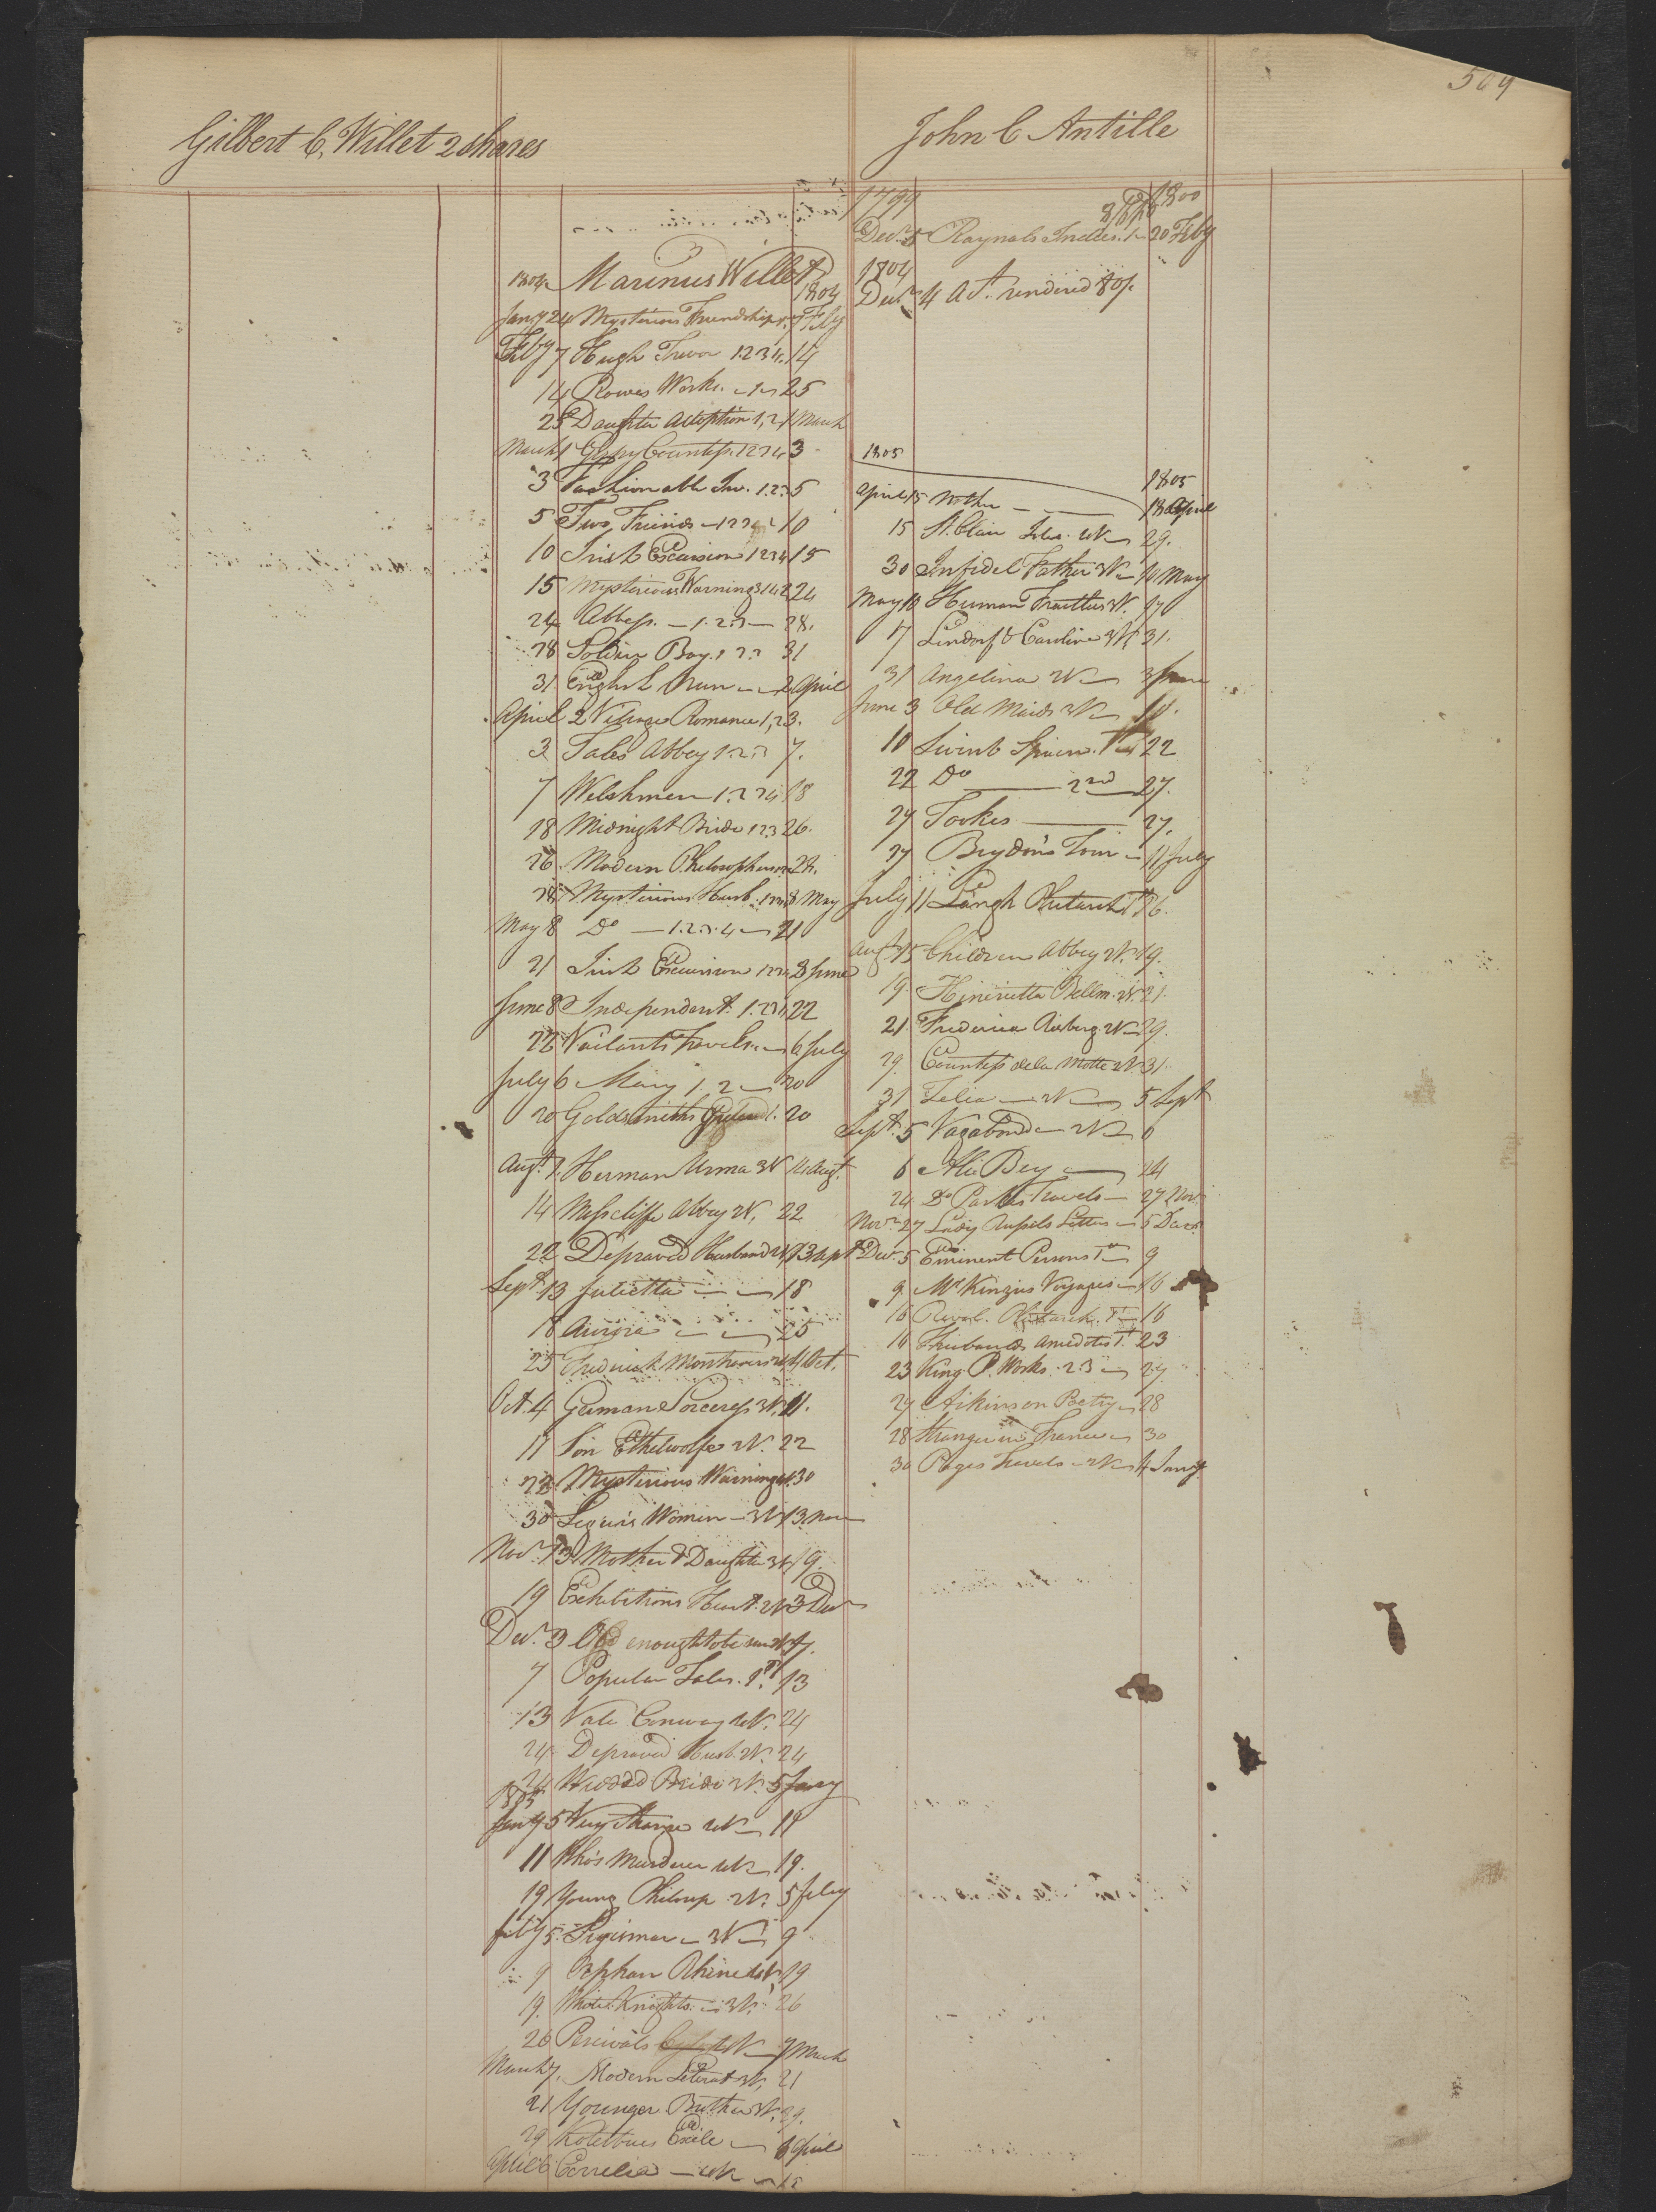 509
Gilbert C. Willet 2 Shares
3
1804 Marinus Willet
1804
Jany 24 Mysterious Friendship 7 Feby
Feby 7 Hugh Trevor 1.2.3.4. 14
14 Rowes Works. 1 25
25 Daughter Adoption 1,2 1 March
March 1 Gypsy Countess. 1 2 3 4 3
3 Fashionable Inv. 1.2.3 5
5 Two Friends 10
10 Irish Excursion 1 2 3 4 15
15 Mysterious Warnings 24
24 Abbess. 1.2.3 28.
28 Soldier Boy. 1 2 3 31
31 English Nun 2 April
April 2 Village Romance 1,2 3.
3 Tales Abbey 1.2.3 7.
7 Welshmen 1.2.3 4 18
18 Midnight Bride 1 2 3 26.
26 Modern Philosophers 28.
28 Mysterious Husb. 8 May
May 8 Do 1.2.3.4 21
21 Irish Excursion 8 June
June 8 Independent. 22
22 Vailants Travels 6 July
July 6 Mary 1. 2 20
20 Goldsmiths 1. 20
Augt 7. Herman Unna 3 V 14 Augt.
14 Wofscliffe Abbey 22
22 Depraved Husband 13 Sept
Sept. 13 Julietta 18
18 Aurora 25
25 Frederick Montrevers 4 Oct.
Oct. 4 German Sorceress 3 V. 11.
11 Son Ethelwolfe 2 V. 22
22 Mysterious Warnings 30
30 Lequin Women 3 V 13 Nov
Nov. 13 Mother & Daughter 3 V 19.
19 Exhibitions Heart. 3 Dec
Decr. 3 Old enough to be 7.
7 Popular Tales. 1st 13
13 Vale Conway 24
24 Depraved Husb. 2 V. 24
24 Wedd'd Bride 5 Jany
1805
Jany 5 Very Strange 2 V 11
11 Who's Murderer 4 V 19.
19 Young Philosop 2 V. 5 Feby
Feby 5. Sigismar 3 V 9
9 Orphan Rhine 19
19. White Knights. 3 V. 26
26 Percivals 7 March
March 7. Modern Literat 3 V, 21
21 Younger Brother 29.
29 Kotzebues Exile 6 April
April 6 Cornelia 18
John C Antille
1799 1800
Decr. 5 Raynals Indies. 1 20 Feby
1804
Decr. 4 Act. rendered 80/.
1805
1805
April 15 Mother 18 April
15 St. Clair Isles. 4 V 29.
30 Infidel Father 3 V 10 May
May 10 Human Frailties 3 V. 17
17 Lindorf & Caroline 3 V. 31.
31 Angelina 2 V 3 June
June 3 Old Maids 3 V 10.
10 Swinb Spain. 1st 22
22 Do 2nd 27.
27 Tookes 27.
27 Brydon's Tour 11 July
July 11 Langh Plutarch 1st 16.
Augt 15 Children Abbey 2 V. 19.
19. Henrietta Bellm. 2 V. 21.
21 Frederica Risberg 2 V 29.
29. Countess de la Motte 2 V. 31.
31 Delia 2 V 5 Sept
Sept. 5 Vagabond 2 V 6
6 Ali Bey 24
24 Do Parks Travels 27 Nov.
Nov. 27 Lady Russels Letters 5 Decr.
Decr. 5 Eminent Persons 1st 9
9 McKinzies Voyages 16
16 Revol. Plutarch. 1st 16
16 Thiebauds Anecdotes 1st 23
23 King P. Works. 2.3 27.
27 Aikin on Poetry 28
28 Stranger in France 30
30 Pages Travels 2 V 4 Jany